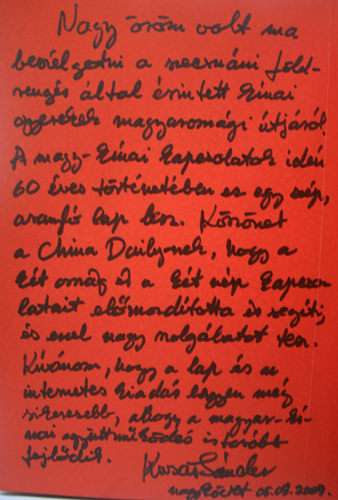 Nagy öröm volt ma
beszélgetni a szecsuáni föld-
rengés által érintett kínai
gyerekek magyarországi útjáról.
A magy-kínai kapcsolatok idén
60 éves történetében ez egy szép,
aranyfó lap lesz. Köszönet
a China Daily-nek, hogy a
két ország és a két nép kapcso-
latait előmozdította és segíti,
és ezzel nagy szolgálatot tesz.
Kívánom, hogy a lap és az
internetes kiadás legyen még
sikeresebb, ahogy a magyar-kí-
nai együttműködés is tovább
fejlődik.
Kusai Sándor
nagykövet 05.08.2009.